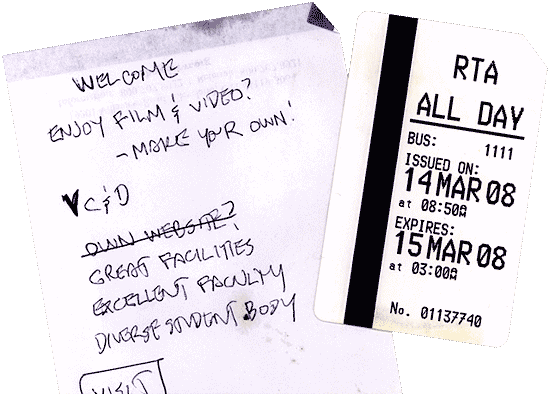 WELCOME
ENJOY FILM & VIDEO?
- MAKE YOUR OWN!
C&D
OWN WEBSITE?
GREAT FACILITIES
EXCELLENT FACULTY
DIVERSE STUDENT BODY
VISIT
RTA
ALL DAY
BUS: 1111
ISSUED ON:
14MAR08
at 08:50A
EXPIRES:
15MAR08
at 03:00A
No. 01137740